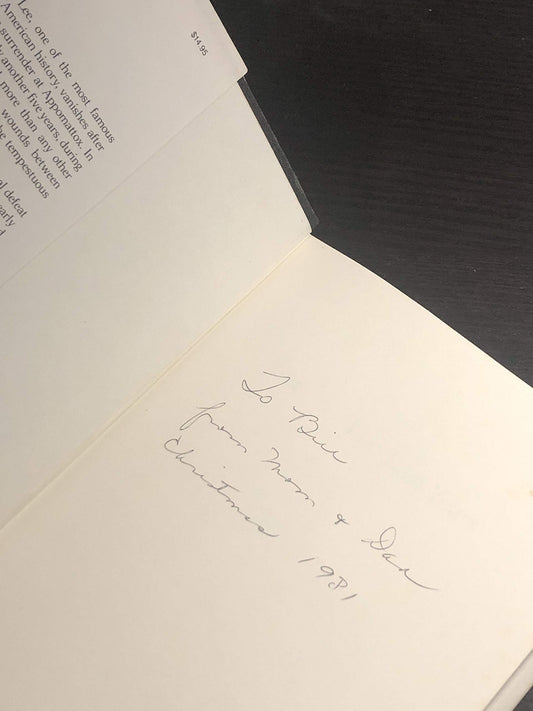 $14.95
Lee, one of the most famous
American history, vanishes after
surrender at Appomattox. In
another five years, during
more than any other
wounds between
the tempestuous
defeat
early
To Bill
from Mom & Dad
Christmas 1981